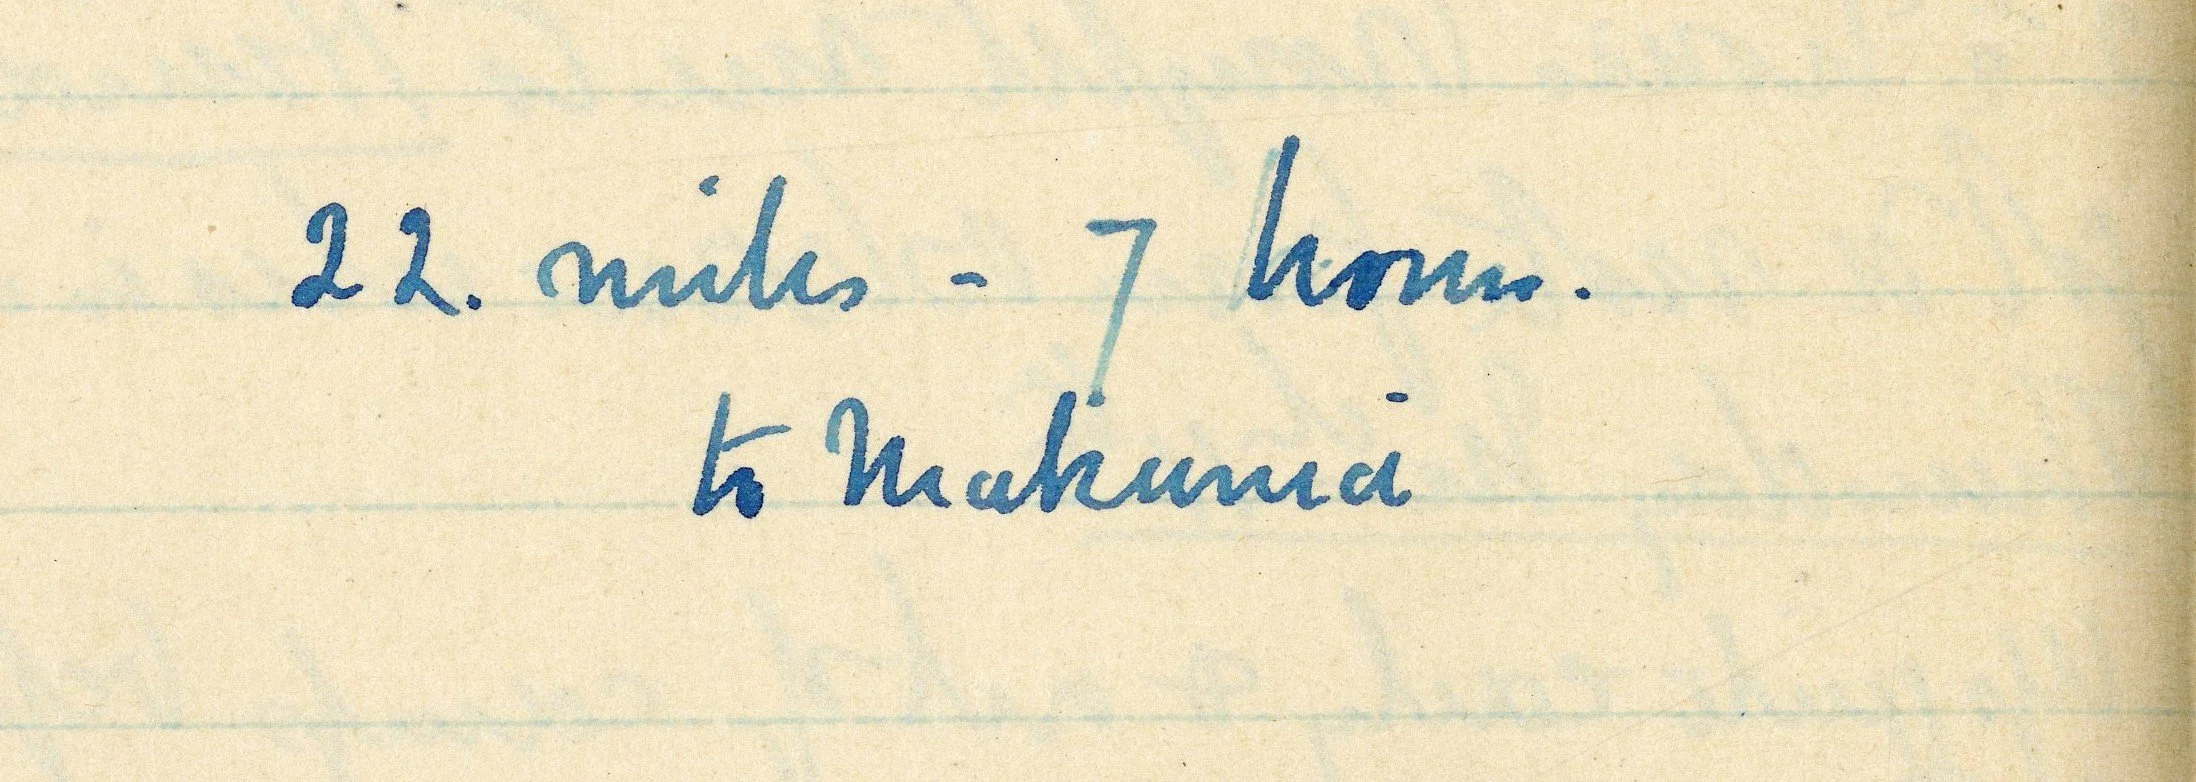 22. miles - 7 hours.
to Makunia